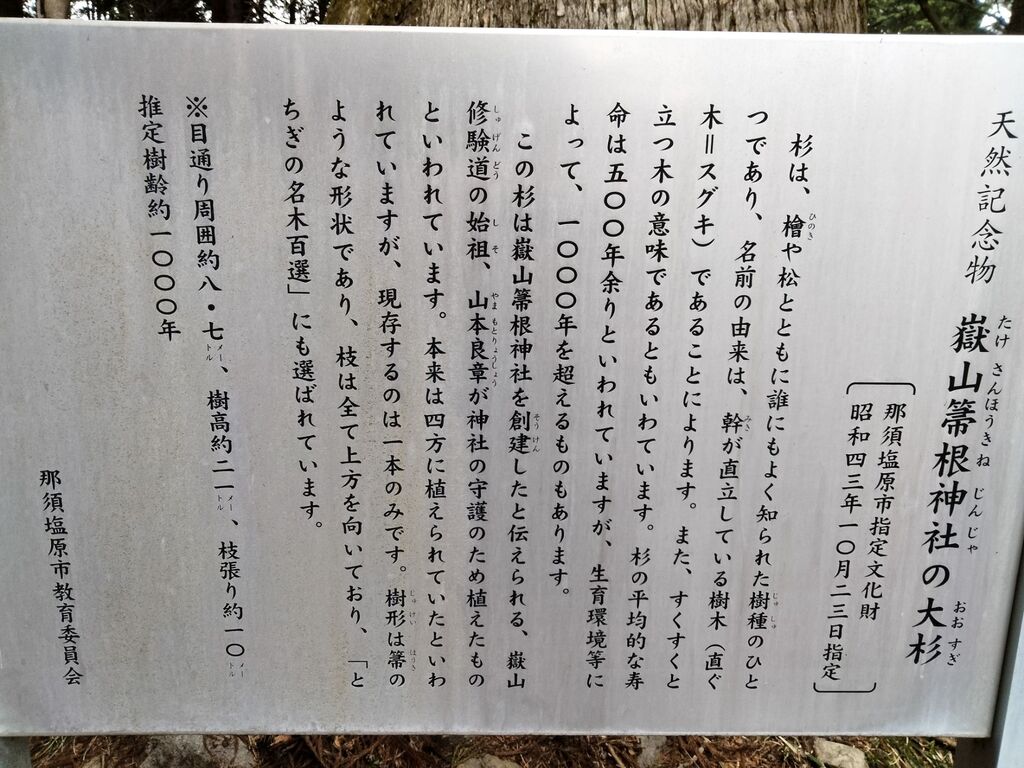 天然記念物
嶽山箒根神社の大杉
那須塩原市指定文化財
昭和四三年一〇月二三日指定
杉は、檜や松とともに誰にもよく知られた樹種のひと
つであり、名前の由来は、幹が直立している樹木（直ぐ
木＝スグキ）であることによります。また、すくすくと
立つ木の意味であるともいわています。杉の平均的な寿
命は五〇〇年余りといわれていますが、生育環境等に
よって、一〇〇〇年を超えるものもあります。
この杉は嶽山箒根神社を創建したと伝えられる、嶽山
修験道の始祖、山本良章が神社の守護のため植えたもの
といわれています。本来は四方に植えられていたといわ
れていますが、現存するのは一本のみです。樹形は箒の
ような形状であり、枝は全て上方を向いており、「と
ちぎの名木百選」にも選ばれています。
※目通り周囲約八・七メートル、樹高約二一メートル、枝張り約一〇メートル
推定樹齢約一〇〇〇年
那須塩原市教育委員会